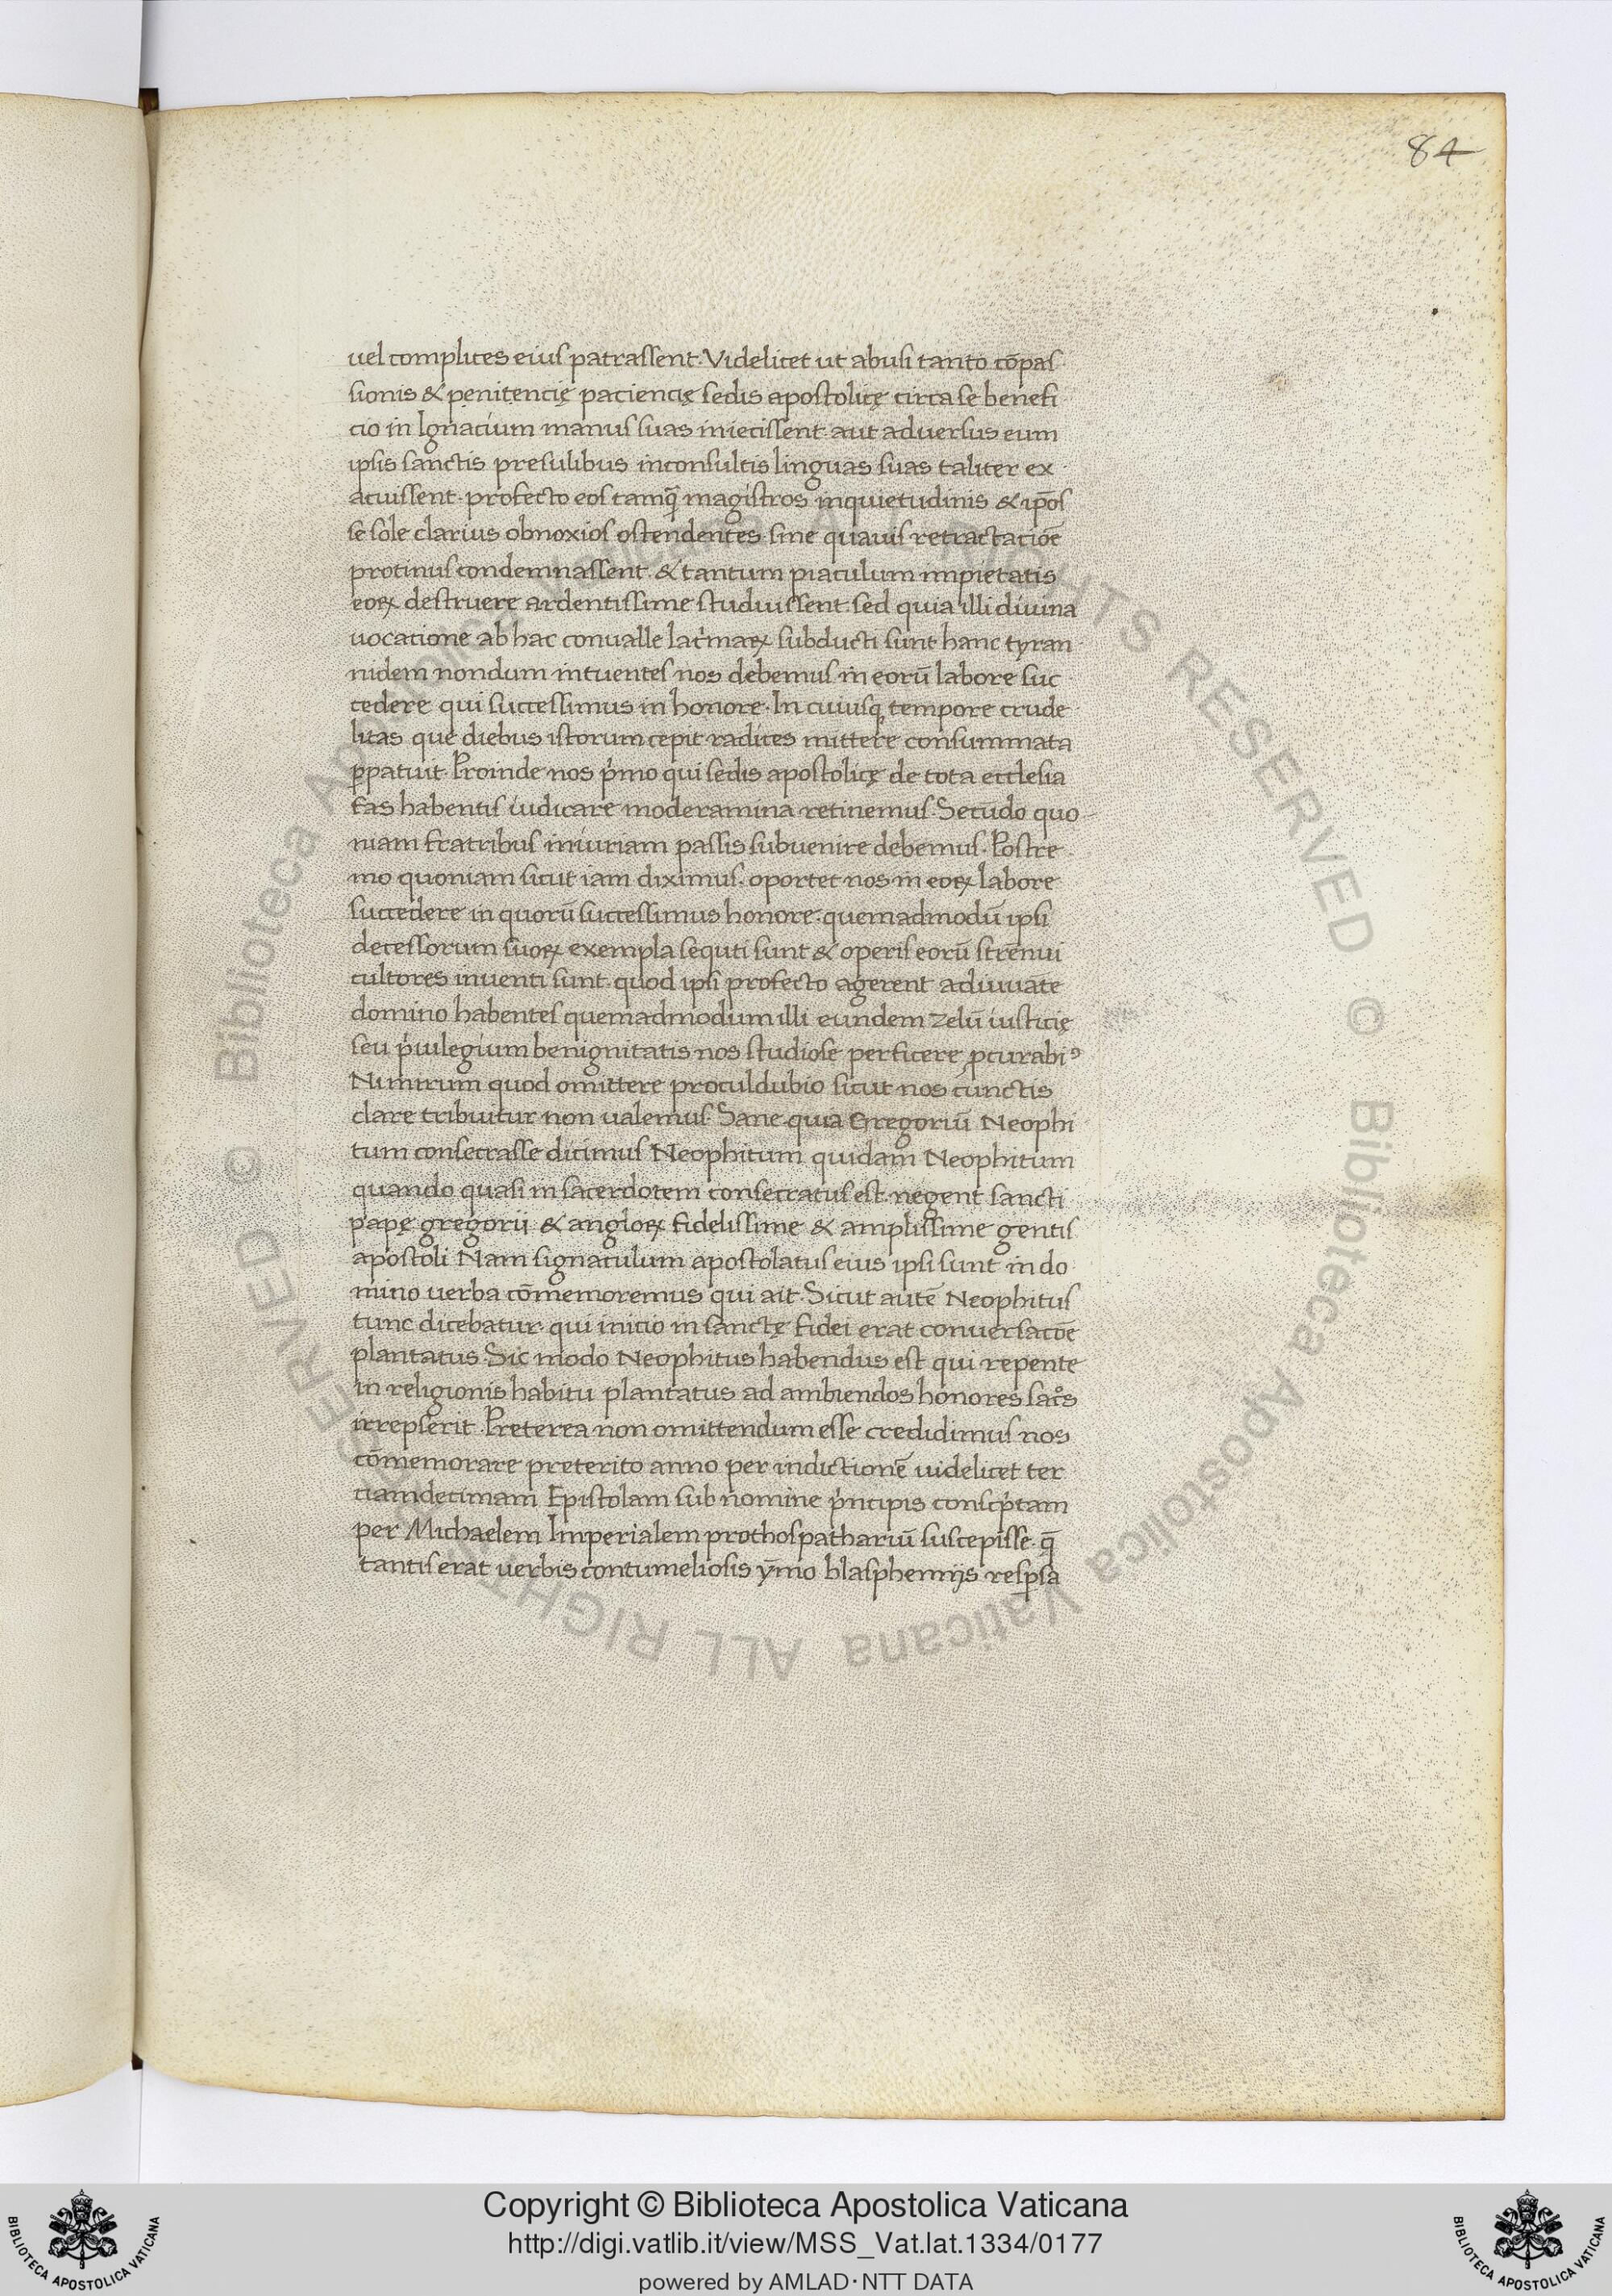 84
uel complices eius patrassent. Videlicet ut abusi tanto cōpas
sionis & penitencię paciencię sedis apostolicę circa se benefi
cio in Ignacium manus suas iniecissent. aut aduersus eum
ipsis sanctis presulibus inconsultis linguas suas taliter ex
acuissent. profecto eos tamq̄ magistros inquietudinis & ip̄os
se sole clarius obnoxios ostendentes. sine quauis retractacióē
protinus condemnassent. & tantum piaculum impietatis
eoꝝ destruere ardentissime studuissent. sed quia illi diuina
uocatione ab hac conualle lac̓maꝝ subducti sunt hanc tyran
nidem nondum intuentes nos debemus in eorū labore suc
cedere qui successimus in honore. In cuiusq; tempore crude
litas que diebus istorum cepit radices mittere consummata
ꝑpatuit. Proinde nos p̓mo qui sedis apostolicę de tota ecclesia
fas habentis iudicare moderamina retinemus. Secūdo quo
niam fratribus iniuriam passis subuenire debemus. Postre
mo quoniam sicut iam diximus. oportet nos in eoꝝ labore
succedere in quorū successimus honore. quemadmodū ipsi
decessorum suoꝝ exempla sequti sunt & operis eorū strenui
cultores inuenti sunt. quod ipsi profecto agerent adiuuāte
domino habentes quemadmodum illi eundem zelū iusticię
seu p̓uilegium benignitatis nos studiose perficere ꝓcurabiꝰ
Nimirum quod omittere proculdubio sicut nos cunctis
clare tribuitur non ualemus. Sane quia Gregoriū Neophi
tum consecrasse dicimus Neophitum quidam Neophitum
quando quasi in sacerdotem consecratus est. negent sancti
papę gregorii & angloꝝ fidelissime & amplissime gentis
apostoli Nam signaculum apostolatus eius ipsi sunt in do
mino uerba cōmemoremus qui ait. Sicut autē Neophitus
tunc dicebatur. qui inicio in sanctę fidei erat conuersacōe
plantatus. Sic modo Neophitus habendus est qui repente
in religionis habitu plantatus ad ambiendos honores sac̊s
irrepserit. Preterea non omittendum esse credidimus nos
cōmemorare preterito anno per indictionē uidelicet ter
ciamdecimam Epistolam sub nomine p̓ncipis consc̓ptam
per Michaelem Imperialem prothospathariū suscepisse. q̄
tantis erat uerbis contumeliosis ȳmo blasphemijs respsa
© Biblioteca Apostolica Vaticana ALL RIGHTS RESERVED © Biblioteca Apostolica Vaticana ALL RIGHTS RESERVED
Copyright © Biblioteca Apostolica Vaticana
http://digi.vatlib.it/view/MSS_Vat.lat.1334/0177
powered by AMLAD·NTT DATA
BIBLIOTECA APOSTOLICA VATICANA
BIBLIOTECA APOSTOLICA VATICANA